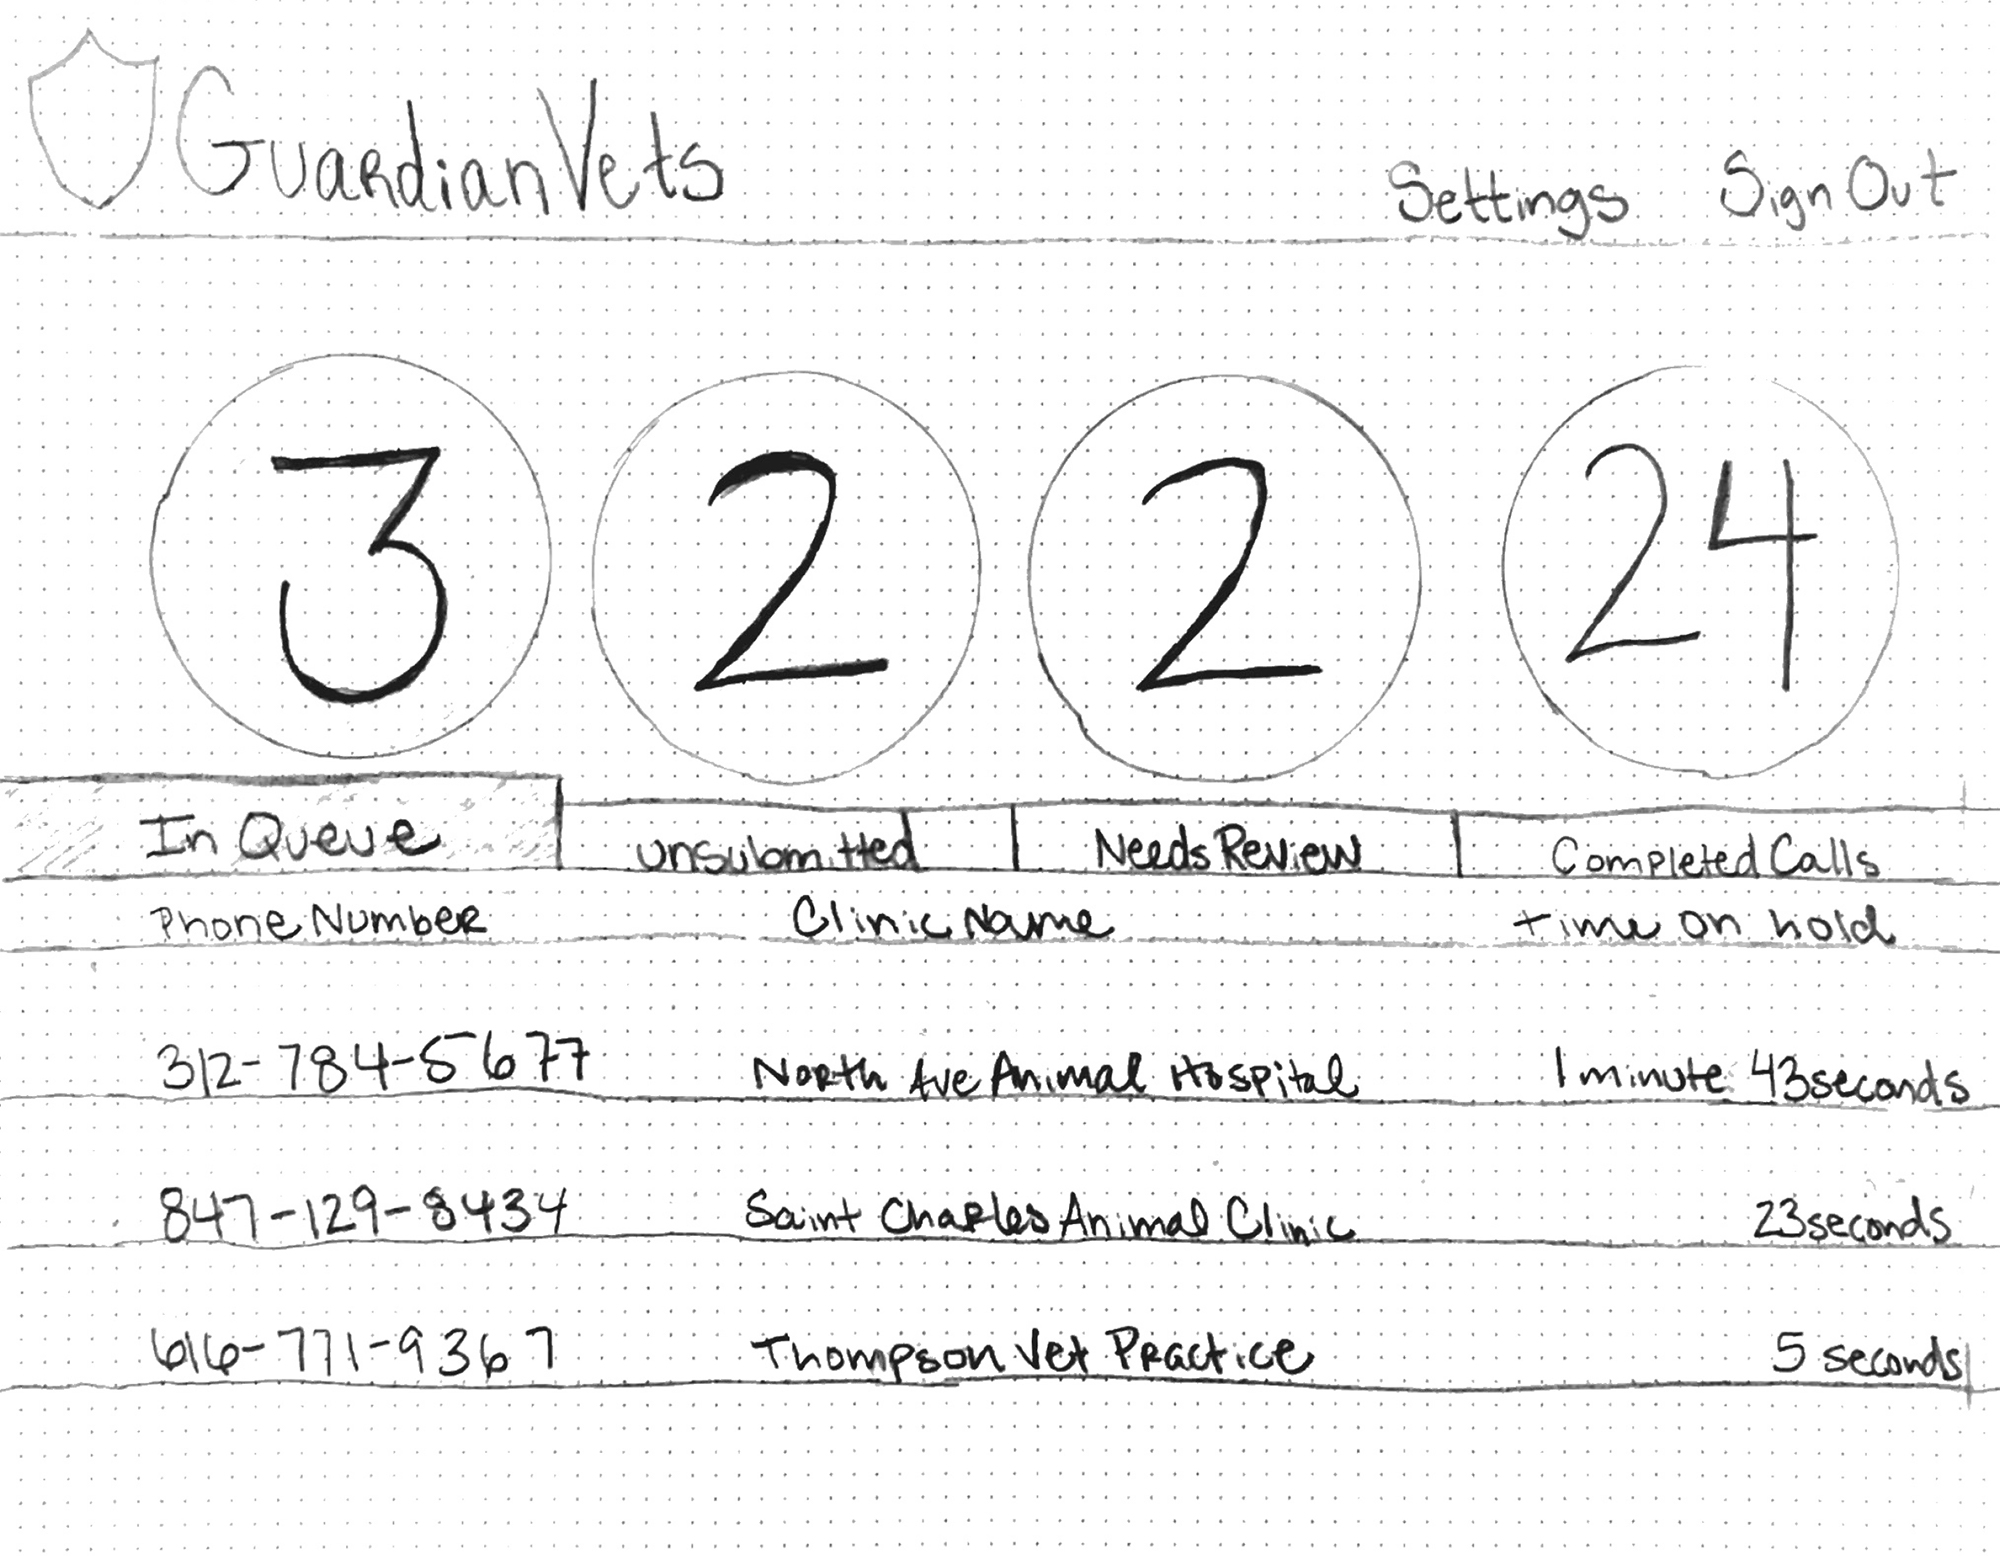 GuardianVets Settings Sign Out
3 2 2 24
In Queue unsubmitted Needs Review Completed Calls
Phone Number Clinic Name time on hold
312-784-5677 North Ave Animal Hospital 1 minute 43 seconds
847-129-8434 Saint Charles Animal Clinic 23 seconds
616-771-9367 Thompson Vet Practice 5 seconds